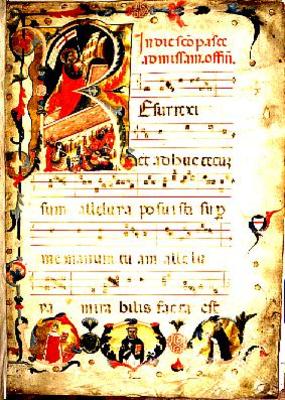 In die scō pasce
ad missam. offm̄.
Resurrexi
Et ad huc tecuz
sum alleluya posuisti sup̄
me manum tu am alle lu
ya mira bilis facta est